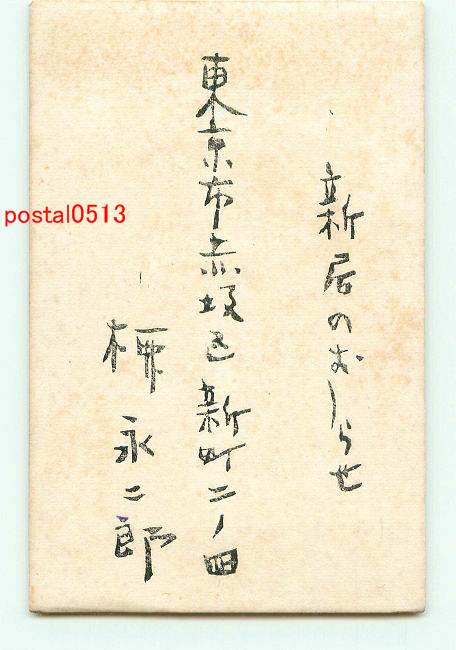 新居のおしらせ
東京市赤坂区新町二ノ四
柳永二郎
postal0513